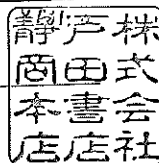 株式会社
戸田書店
靜岡本店